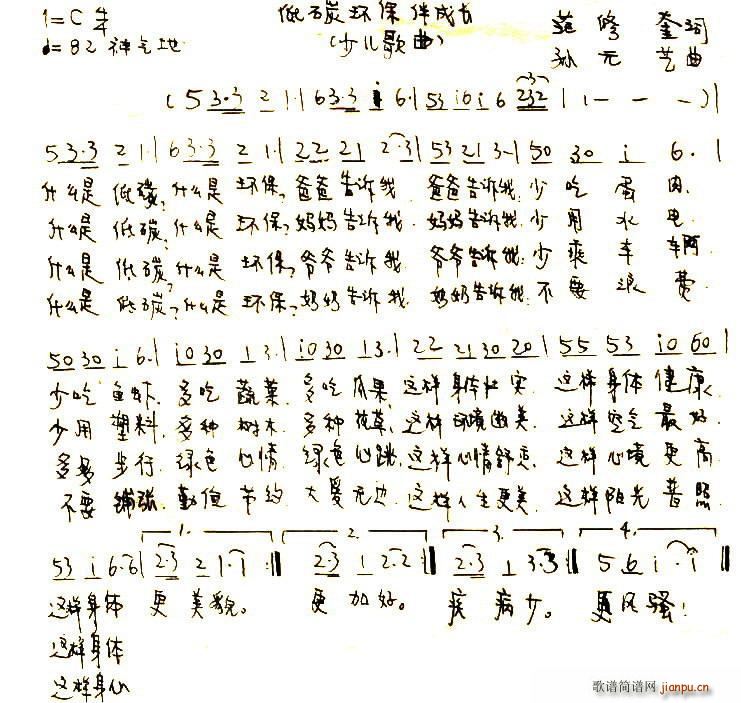 低碳环保伴成长
1=C 4/4 (少儿歌曲) 范修奎词
♩=82 神气地 孙元艺曲
(5 3·3 2 1·| 6 3·3 i 6·| 53 i0 i 6 232 | 1 - - - )|
5 3·3 2 1·| 6 3·3 2 1·| 22 21 2·3| 53 21 3·| 50 30 i 6·|
什么是 低碳,什么是 环保,爸爸告诉我 爸爸告诉我:少 吃 蛋 肉.
什么是 低碳,什么是 环保,妈妈告诉我 妈妈告诉我:少 用 水 电
什么是 低碳?什么是 环保,爷爷告诉我 爷爷告诉我:少 乘 车 辆
什么是 低碳?什么是 环保?奶奶告诉我 奶奶告诉我:不 要 浪 费
50 30 i 6·| i0 30 1 3·| i0 30 1 3·| 22 21 30 20| 55 53 i0 60|
少吃 鱼虾.多吃 蔬菜.多吃 瓜果.这样 身体壮实 这样身体 健康.
少用 塑料.多种 树木.多种 花草,这样 环境优美.这样 空气 最好.
多多 步行.绿色 心情.绿色 心跳,这样心情舒爽.这样 心境 更 高
不要 铺张.勤俭 节约 大爱无边.这样人生更美.这样阳光 普照
1. 2. 3. 4.
53 i 6·6| 2·3 2 1·1 :‖ 2·3 1 2·2 :‖ 2·3 1 3·3 :‖ 5 6 i·i‖
这样身体 更 美貌。 更 加好。 疾 病少。 更风骚!
这样身体
这样身心
歌谱简谱网 jianpu.cn